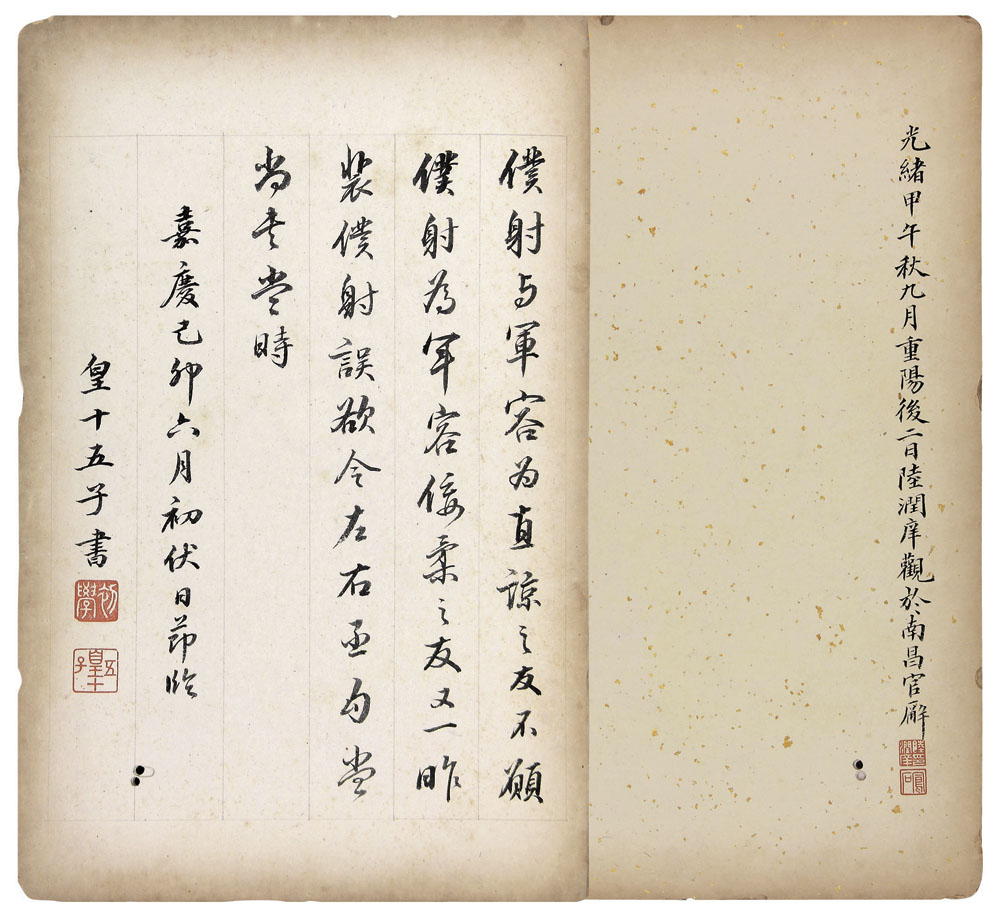 光緒甲午秋九月重陽後二日陸潤庠觀於南昌官廨
陸潤庠印
鳳石
僕射与軍容為直諒之友不願
僕射為軍容佞柔之友又一昨
裴僕射誤欲令左右丞勾當
尚書當時
嘉慶己卯六月初伏日節臨
皇十五子書
皇十五子